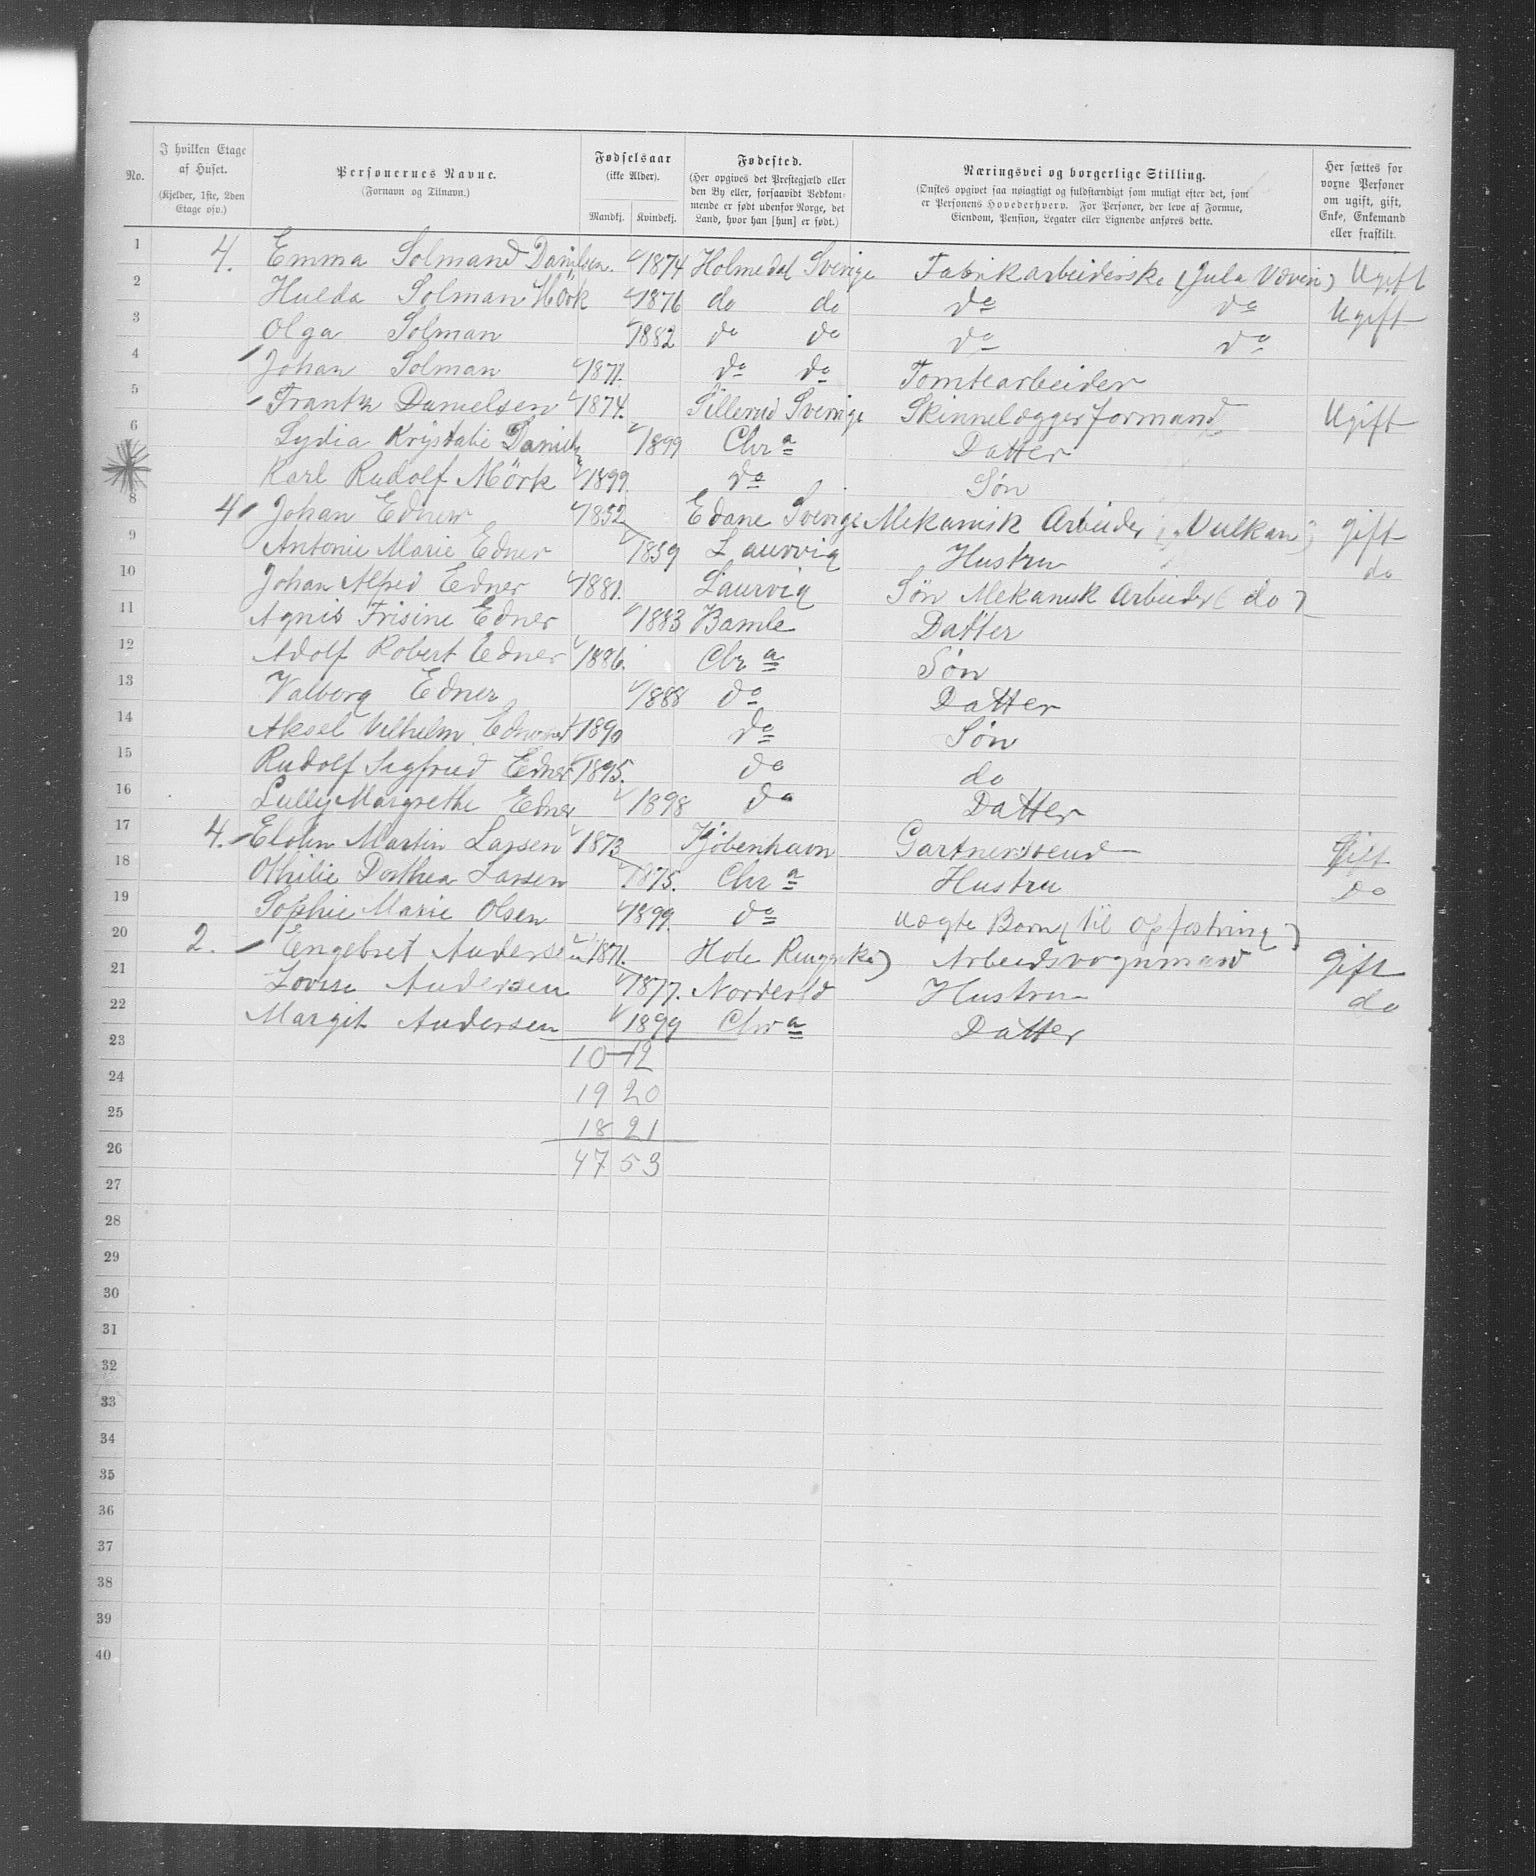 No.
I hvilken Etage af Huset. (Kjelder, 1ste, 2den Etage osv.)
Personernes Navne. (Fornavn og Tilnavn.)
Fødselsaar (ikke Alder). Mandkj. Kvindekj.
Fødested. (Her opgives det Prestegjæld eller den By eller, forsaavidt Vedkommende er født udenfor Norge, det Land, hvor han [hun] er født.)
Næringsvei og borgerlige Stilling. (Ønskes opgivet saa nøiagtigt og fuldstændigt som muligt efter det, som er Personens Hovederhverv. For Personer, der leve af Formue, Eiendom, Pension, Legater eller Lignende anføres dette.
Her sættes for voxne Personer om ugift, gift, Enke, Enkemand eller fraskilt.
1 4. Emma Solmand Danielsen. 1874 Holmedal Sverige Fabrikarbeiderske (Jula Væveri) Ugift
2 Hulda Solman Mörk 1876 do do do do Ugift
3 Olga Solman 1882 do do do do
4 Johan Solman 1871. do do Tomtearbeider
5 Frantz Danielsen 1874. Sillerud Sverrige Skinnelæggerformand Ugift
6 Lydia Krystalie Daniels 1899 Chra Datter
Karl Rudolf Mörk 1899 do Søn
8 4 Johan Edner 1852 Edane Sverige Mekanisk Arbeider („Vulkan") gift
9 Antonie Marie Edner 1859 Laurvig Hustru do
10 Johan Alfred Edner 1881. Laurvig Søn Mekanisk Arbeider (do)
11 Agnis Frisine Edner 1883 Bamle Datter
12 Adolf Robert Edner 1886. Chra Søn
13 Valborg Edner 1888 do Datter
14 Aksel Vilhelm Edner 1890 do Søn
15 Rudolf Sigfried Edner 1895. do do
16 Lully Margrethe Edner 1898 do Datter
17 4. Martin Larsen 1873 Kjøbenhavn Gartnersvend Gift
18 Othilie Dorthea Larsen 1875. Chra Hustru do
19 Sophie Marie Olsen 1899. do uægte Barn (til opfostring)
20 2. Engebret Andersen 1871. Hole Ringerike) Arbeidsvognmand gift
21 Lovise Andersen 1877. Nordero̊ld Hustru do
22 Margit Andersen 1899 Chra Datter
23 10-12
24 19 20
25 18 21
26 47 53
27
28
29
30
31
32
33
34
35
36
37
38
39
40